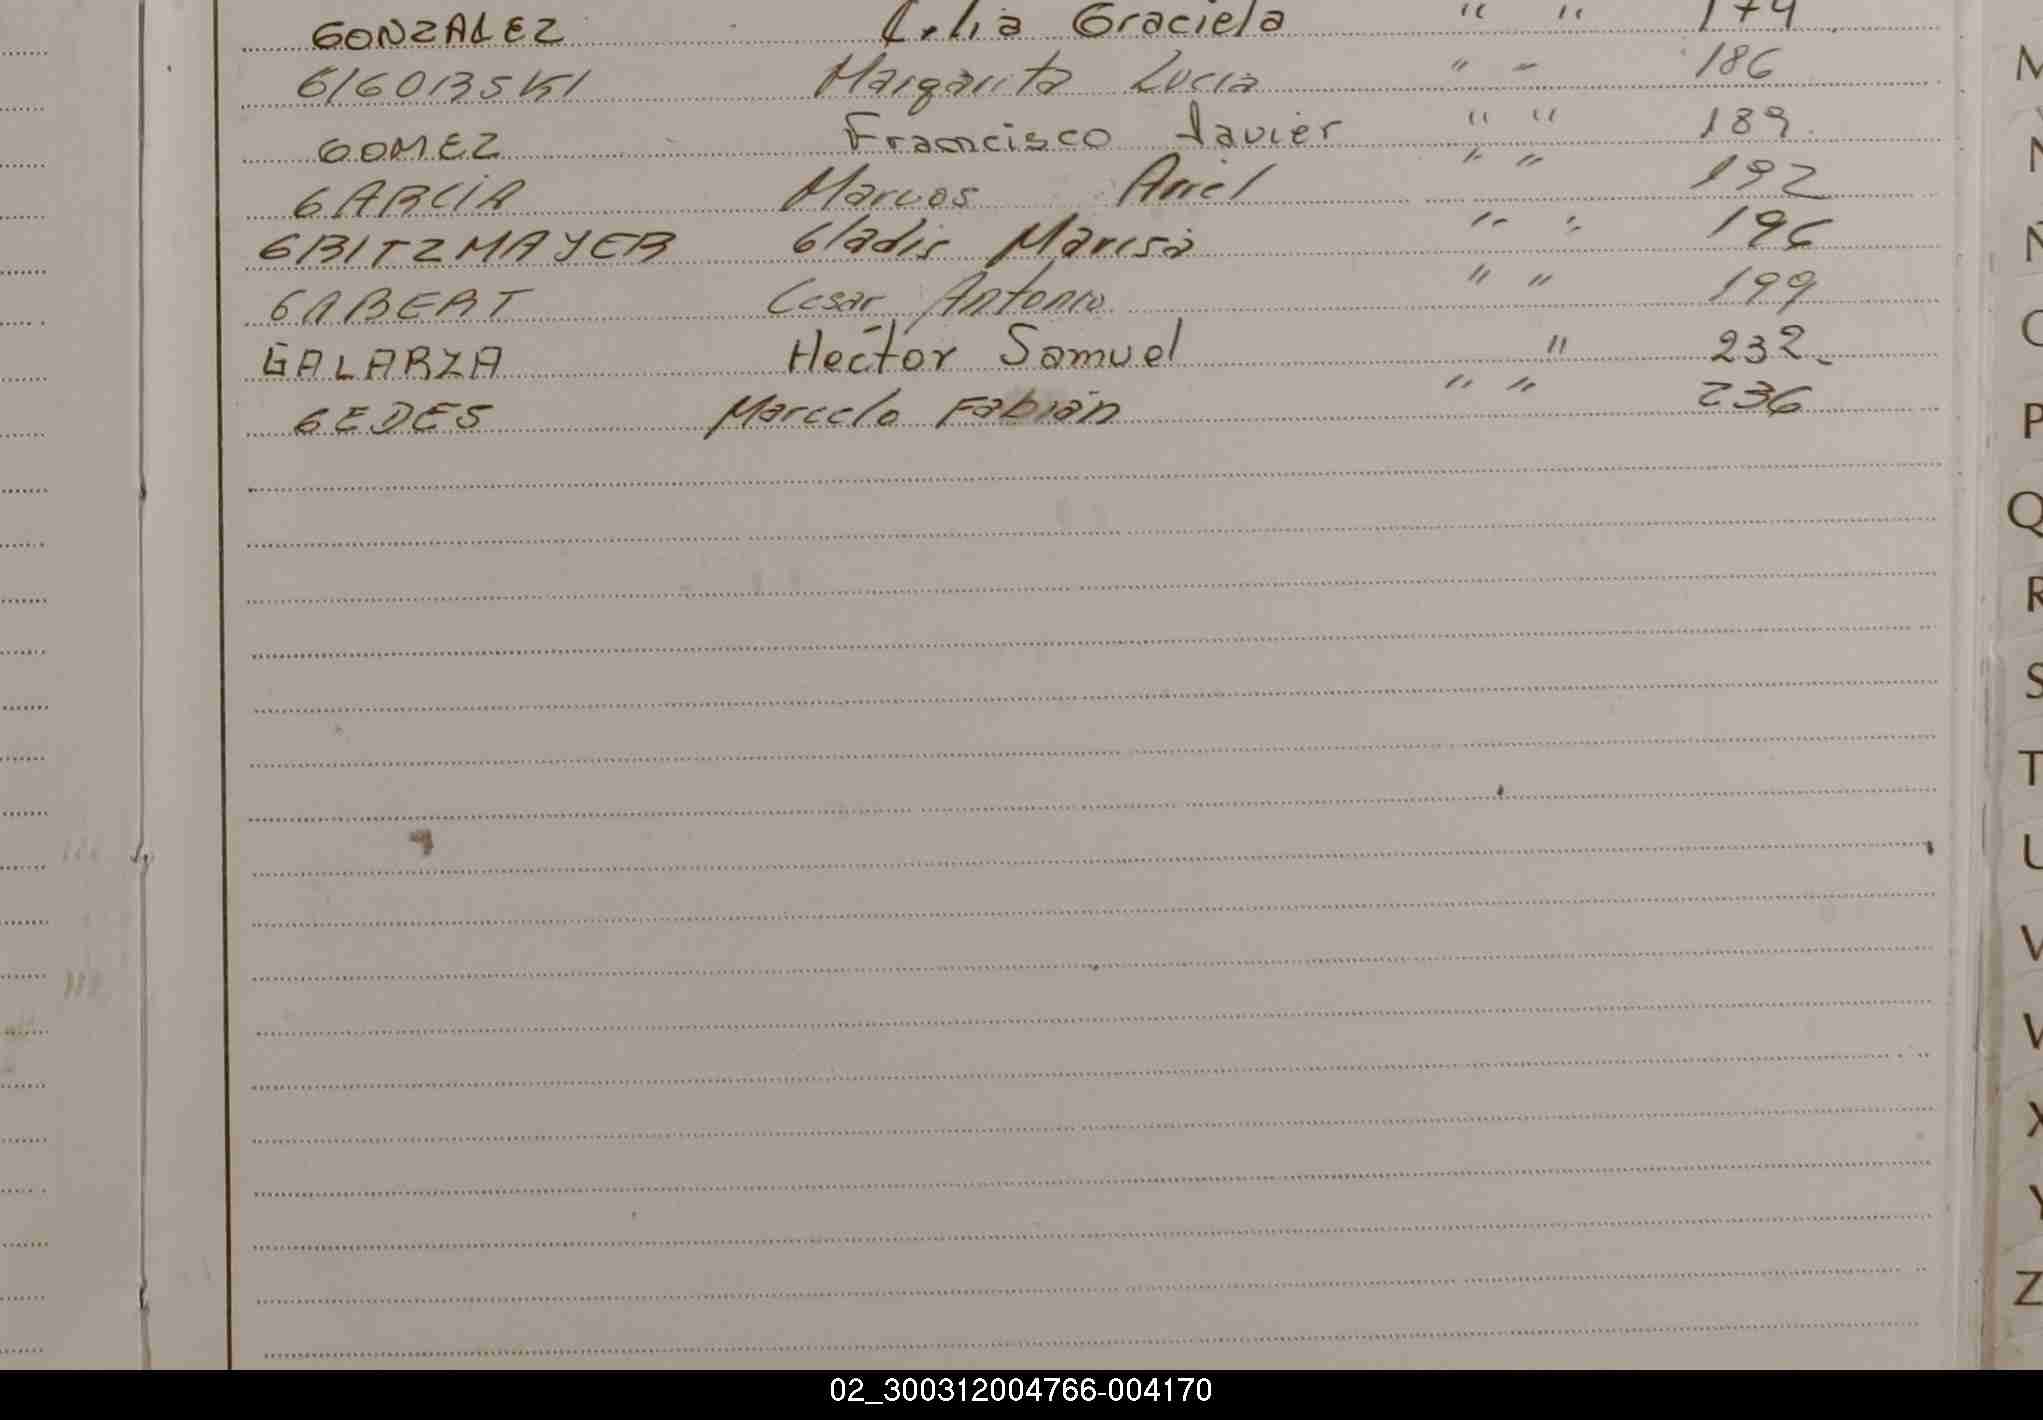 GONZALEZ Celia Graciela " " 174
GIGORSKI Margarita Lucia " " 186
GOMEZ Francisco Javier " " 189
GARCIA Marcos Ariel " " 192
GRITZMAYER Gladis Marisa " " 196
GABERT Cesar Antonio " " 199
GALARZA Hector Samuel " 232
GEDES Marcelo Fabián " " 236
M
N
Ñ
O
P
Q
R
S
T
U
V
W
X
Y
Z
02_300312004766-004170